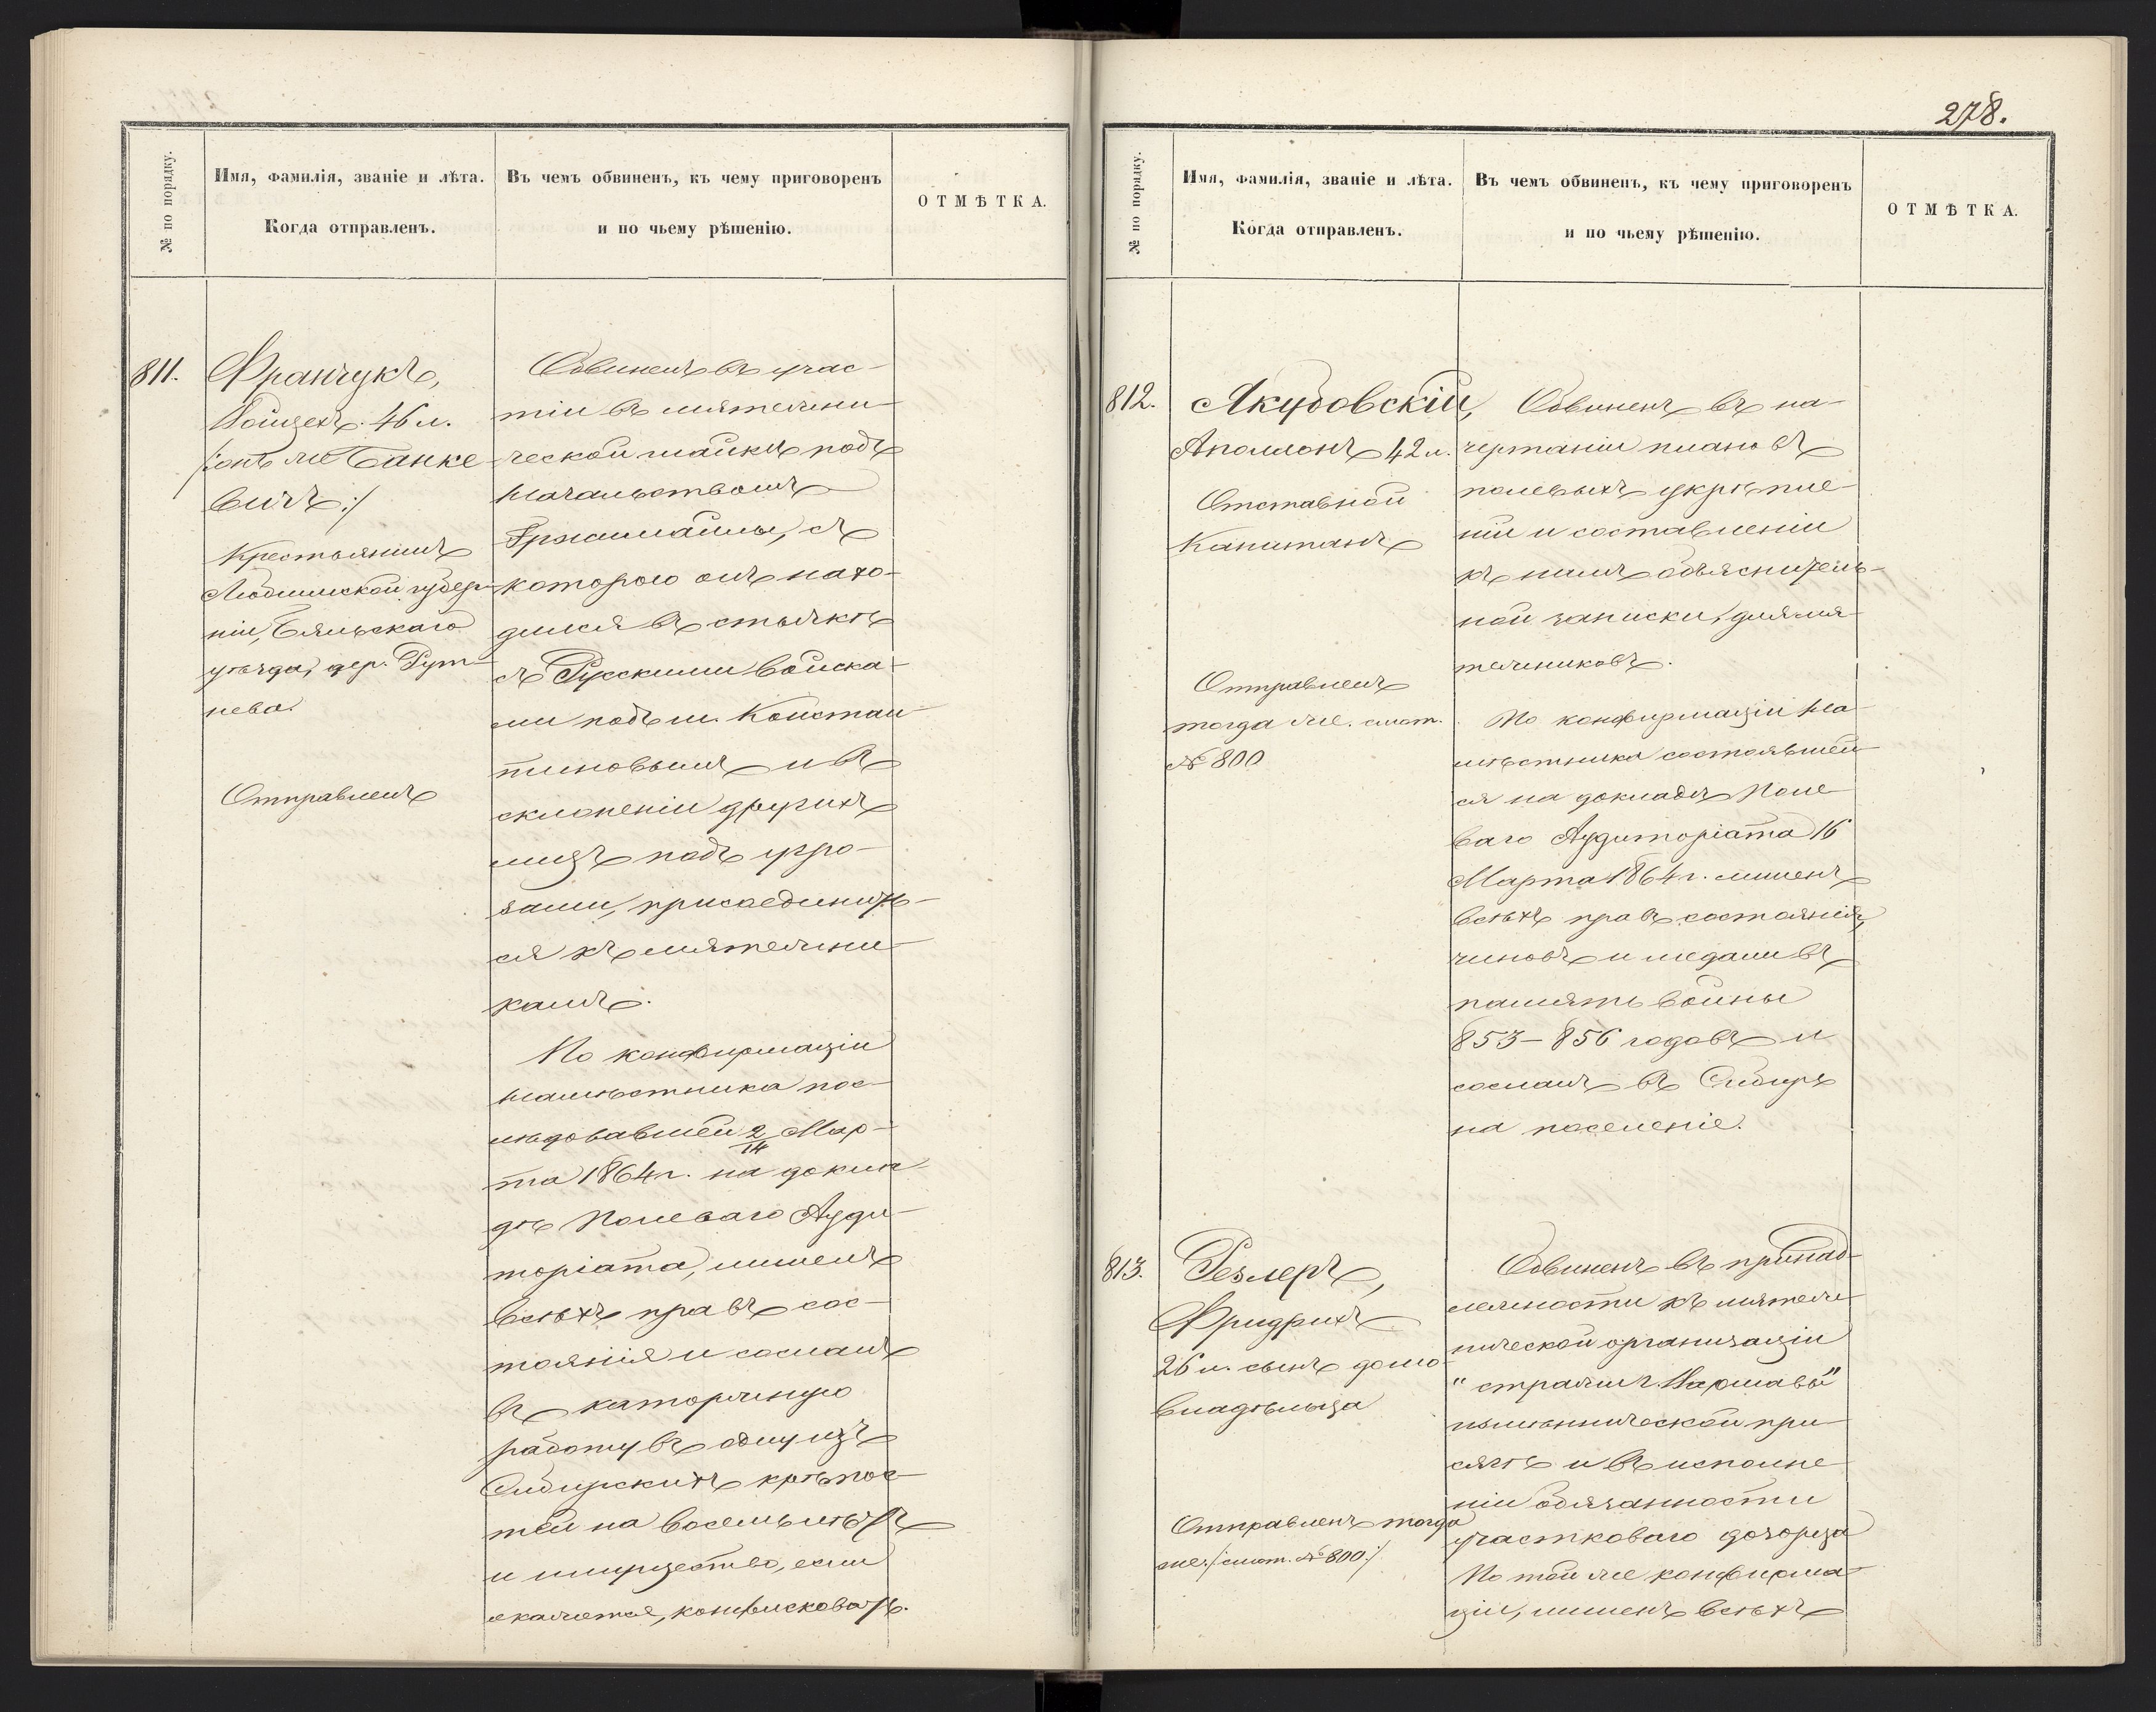 № по порядку.
Имя, фамилія, званіе и лѣта.
Когда отправленъ.
Въ чемъ обвиненъ, къ чему приговоренъ
и по чьему рѣшенію.
ОТМѢТКА.
811.
Франчукъ,
Войцехъ. 46 л.
/:онъ же Банке
вичъ:/
Крестьянинъ
Люблинской губер-
ніи, Бяльскаго
уѣзда, дер. Рут-
нева.
Отправленъ
Обвиненъ въ учас-
тіи въ мятежни-
ческой шайкѣ подъ
начальствомъ
Гржимайлы, съ
которою онъ нахо-
дился въ стычкѣ
съ Русскими войска-
ми подъ м. Констан-
тиновымъ и въ
склоненіи другихъ
лицъ подъ угро-
зами, присоединить-
ся къ мятежни-
камъ.
По конфирмаціи
Намѣстника пос-
лѣдовавшей 2/14 Мар-
та 1864 г. на докла-
дѣ Полеваго Ауди-
торіата, лишенъ
всѣхъ правъ сос-
тоянія и сосланъ
въ каторжную
работу въ одну изъ
Сибирскихъ крѣпос-
тей на восемь лѣтъ
и имущество, если
окажется, конфисковать.
278.
№ по порядку.
Имя, фамилія, званіе и лѣта.
Когда отправленъ.
Въ чемъ обвиненъ, къ чему приговоренъ
и по чьему рѣшенію.
ОТМѢТКА.
812.
Якубовскій,
Аполлонъ 42 л.
Отставной
Капитанъ
Отправленъ
тогда же. смот.
№ 800
Обвиненъ въ на-
чертаніи плановъ
полевыхъ укрѣпле-
ній и составленіи
къ нимъ объяснитель-
ной записки, для мя-
тежниковъ.
По конфирмаціи На-
мѣстника состоявшей-
ся на докладѣ Поле-
ваго Аудиторіата 16
Марта 1864 г. лишенъ
всѣхъ правъ состоянія,
чиновъ и медали въ
память войны
853–856 годовъ и
сосланъ въ Сибирь
на поселеніе.
813.
Резлеръ,
Фридрихъ
26 л. сынъ домо-
владѣльца
Отправленъ тогда
же. /:смот. № 800:/
Обвиненъ въ принад-
лежности къ мятеж-
нической организаціи
"стражи г. Варшавы"
измѣннической при-
сягѣ и въ исполне-
ніи обязанности
участковаго дозорца
По той же конфирма-
ціи, лишенъ всѣхъ